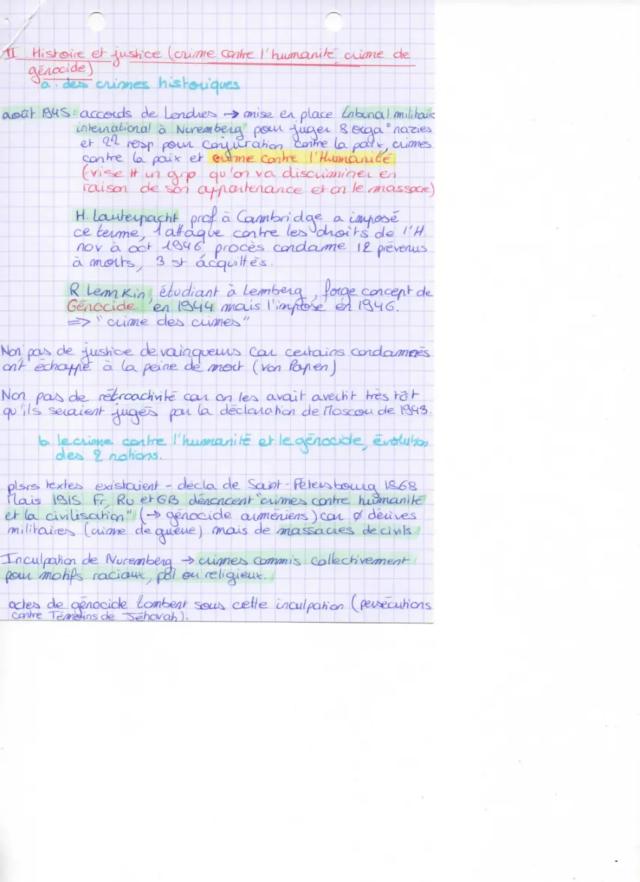 II Histoire et justice (crime contre l'humanité crime de
génocide)
a. des crimes historiques
août 1945: accords de Londres → mise en place tribunal militaire
international à Nuremberg pour juger 8 orga° nazies
et 22 resp pour conjuration contre la paix, crimes
contre la paix et crime contre l'Humanité
(vise tt un grp qu'on va discriminer en
raison de son appartenance et on le massacre)
H. Lauterpacht prof à Cambridge a imposé
ce terme, 1 attaque contre les droits de l'H.
nov à oct 1946 procès condamne 12 prévenus
à morts, 3 st acquittés.
R Lemkin, étudiant à Lemberg, forge concept de
Génocide en 1944 mais l'impose en 1946.
=> "crime des crimes"
Non pas de justice de vainqueurs car certains condamnés
ont échappé à la peine de mort (Von Papen)
Non pas de rétroactivité car on les avait avertit très tôt
qu'ils seraient jugés par la déclaration de Moscou de 1943.
b. le crime contre l'humanité et le génocide, évolution
des 2 notions.
plsrs textes existaient - décla de Saint-Pétersbourg 1868
Mais 1915 Fr, Ru et GB dénoncent "crimes contre humanité
et la civilisation" (→ génocide arméniens) car Ø dérives
militaires (crime de guerre) mais de massacres de civils.
Inculpation de Nuremberg → crimes commis collectivement
pour motifs raciaux, pol ou religieux.
actes de génocide tombent sous cette inculpation (persécutions
contre Témoins de Jéhovah).